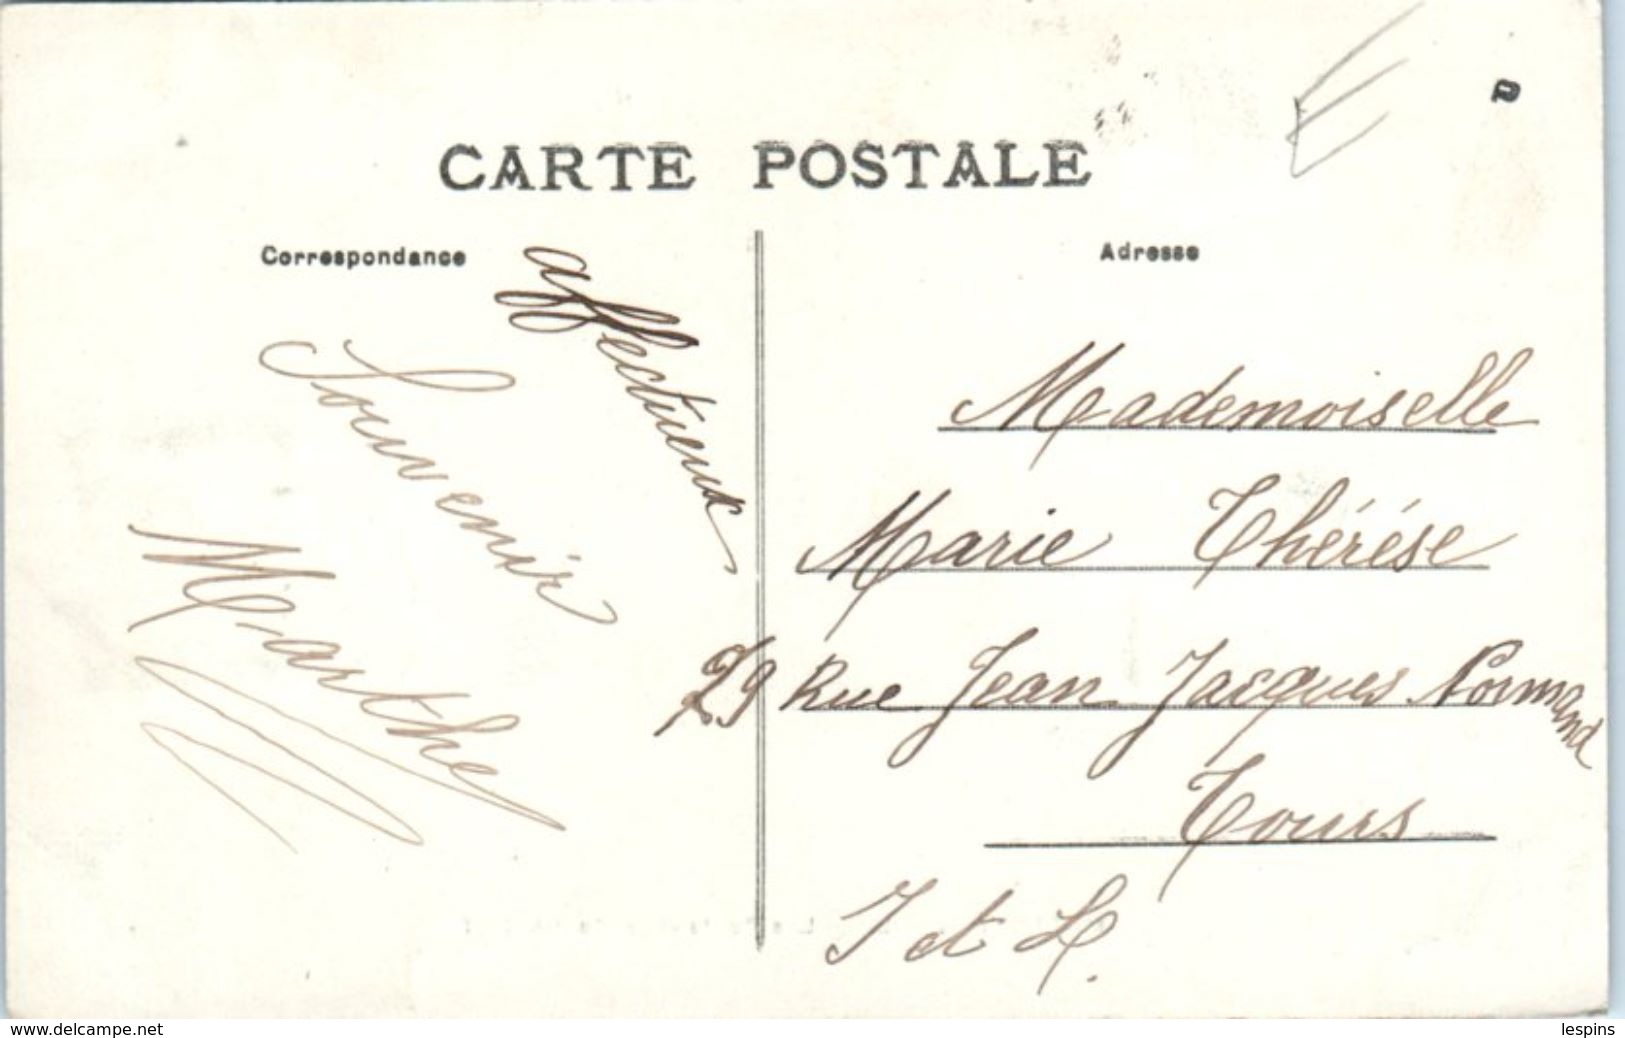 CARTE POSTALE
Correspondance
affectueux
Souvenir
Marthe
Adresse
Mademoiselle
Marie Thérése
29 Rue Jean Jacques Normand
Tours
I et L.
www.delcampe.net
lespins